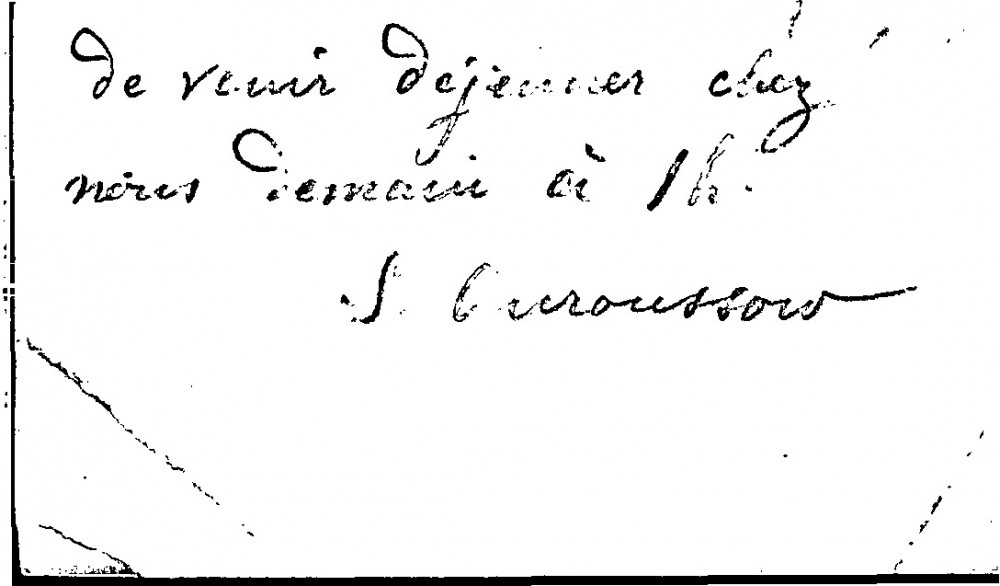 de venir dejeuner chez
nous demain à 1h.
S. Ouroussow